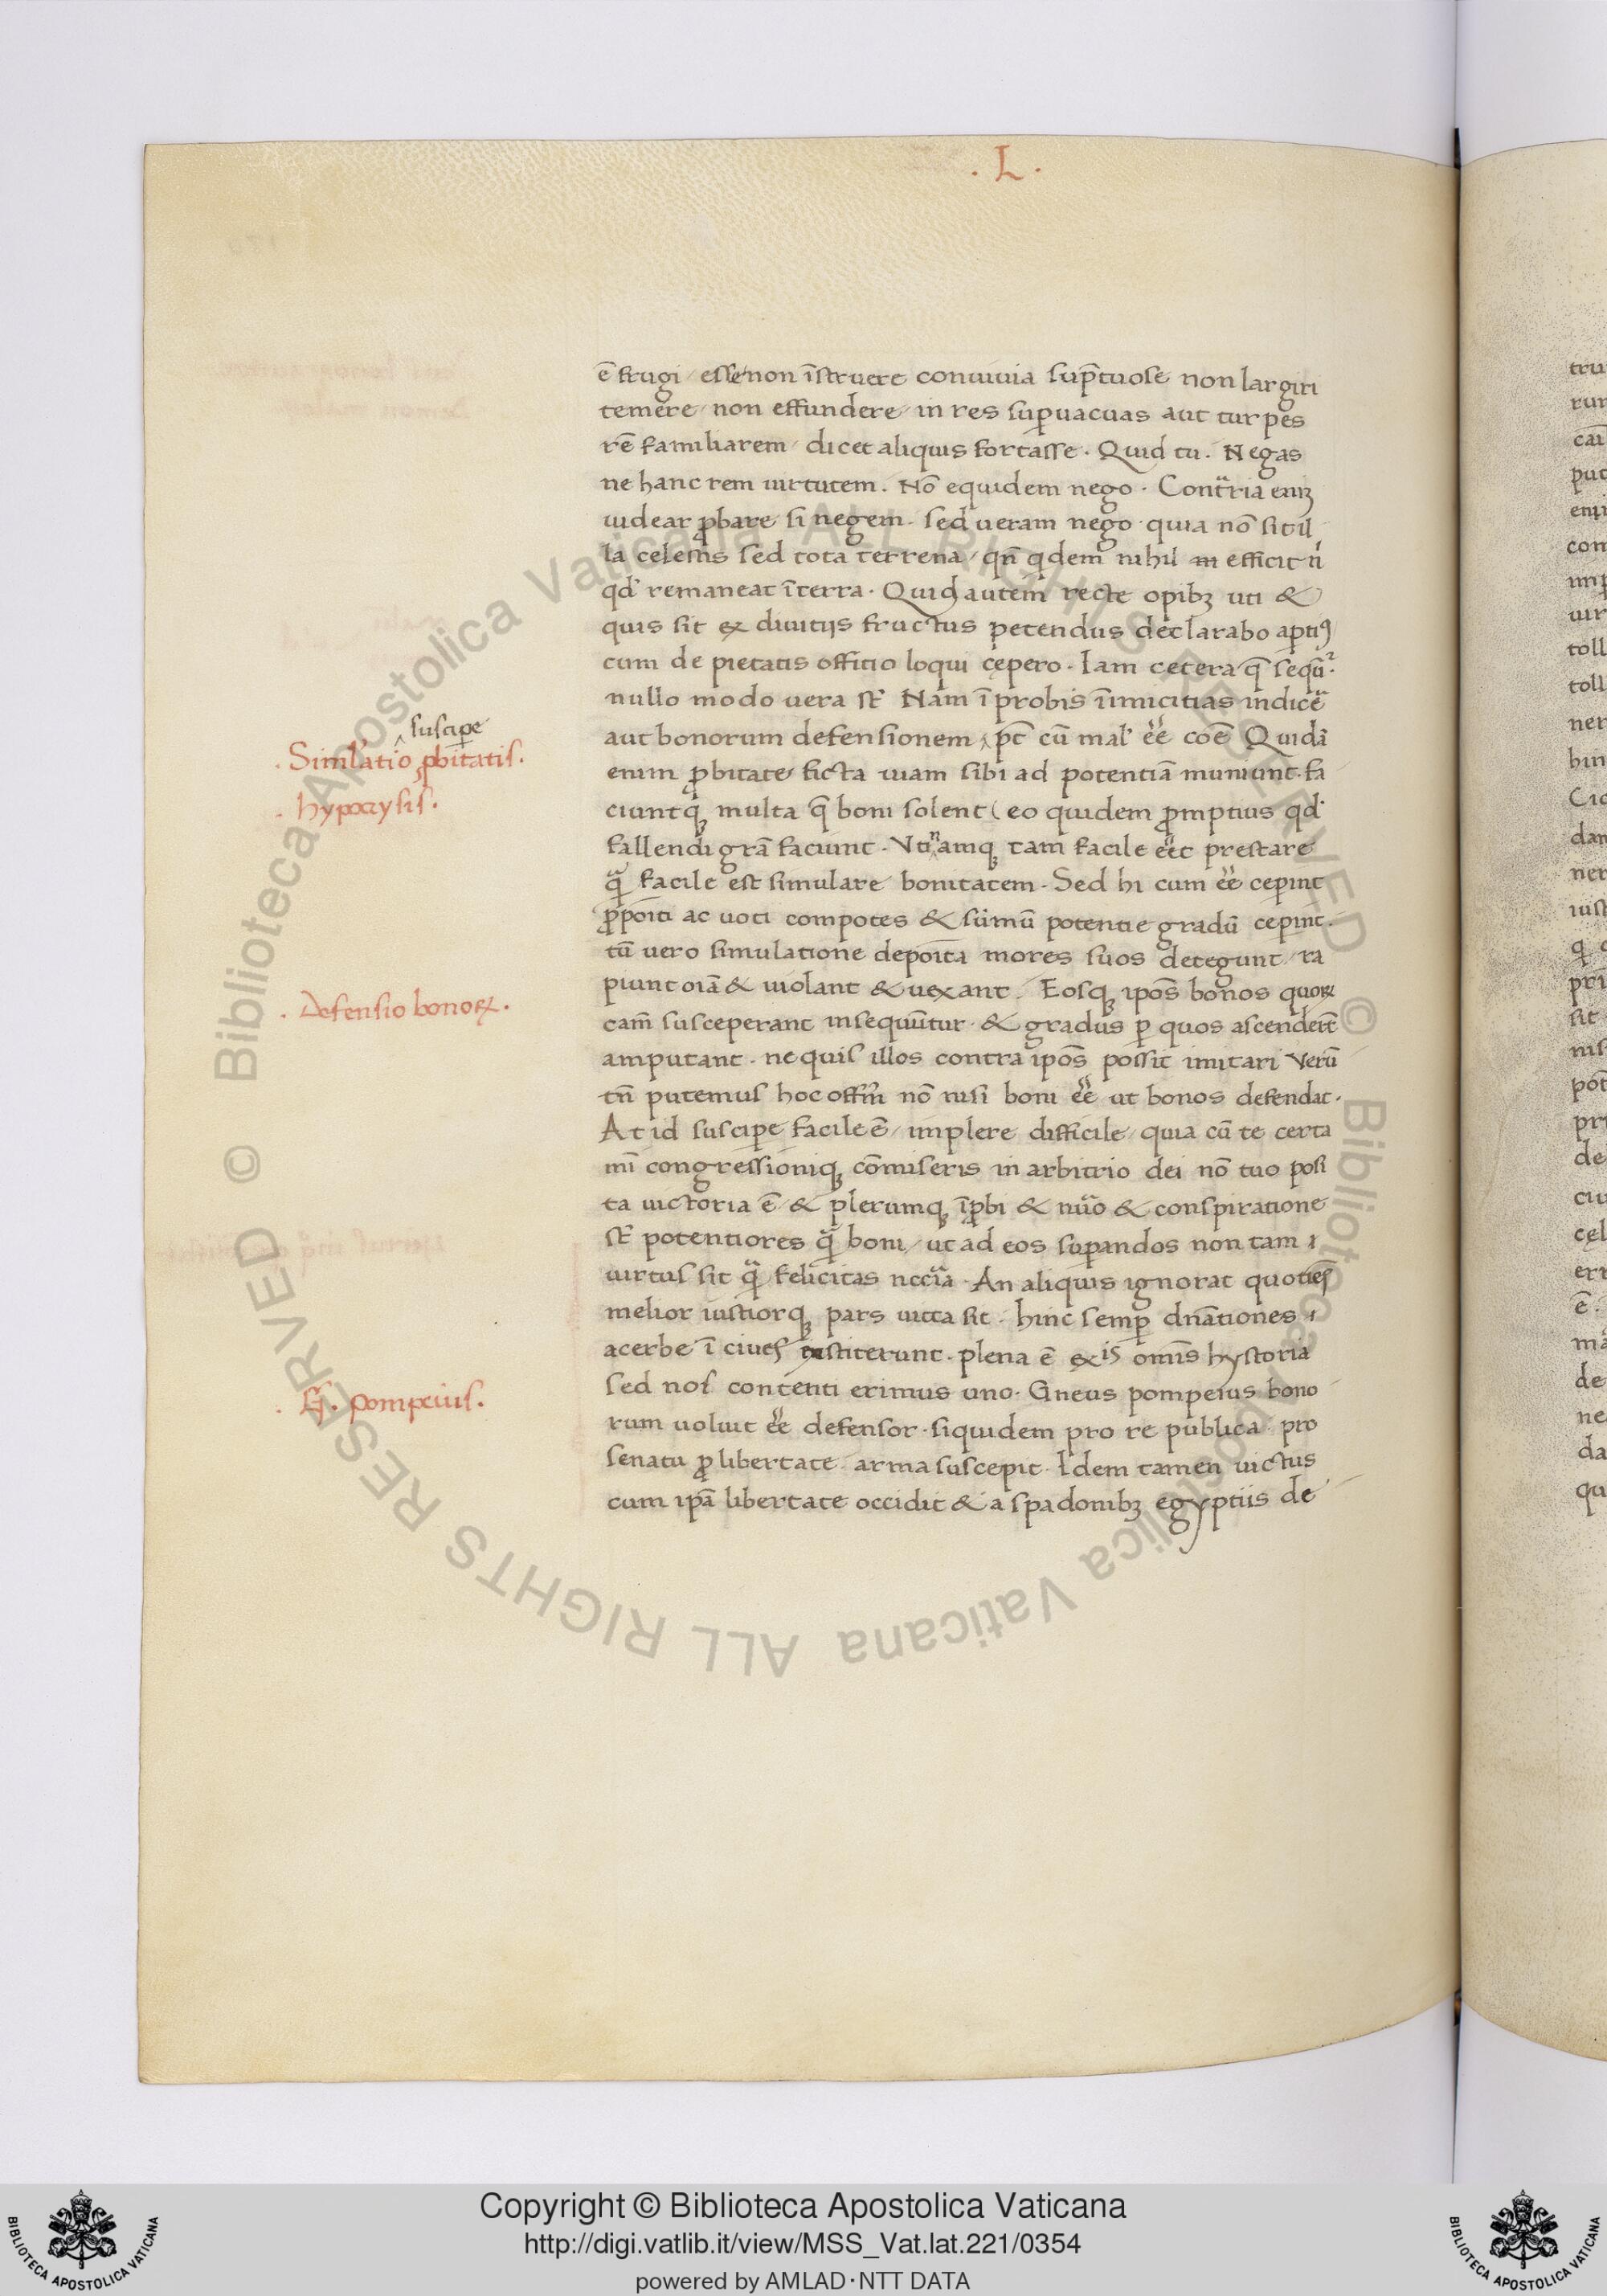 . L .
ē frugi / esse non īstruere conuiuia sup̄tuose non largiri
temere / non effundere / in res sup̱uacuas aut turpes
rē familiarem / dicet aliquis fortasse . Quid tu . Negas
ne hanc rem uirtutem . Nō equidem nego . Cont̃ria eniʒ
uidear ꝓbare si negem . sed ueram nego . quia nō sit il
la celestis sed tota terrena / qn̄ qdem nihil efficit n
qd' remaneat ī terra . Quid autem recte opibʒ uti &
quis sit ex diuitijs fructus petendus declarabo apti9
cum de pietatis offitio loqui cępero . Iam cetera q̄ seqūr
nullo modo uera st̄ Nam īprobis īimicitias indicē
suscipe
aut bonorum defensionem ‸ pt̄ cū mal' ēē coē Quidā
. Simlatio ꝓbitatis .
enim ꝓbitate ficta uiam sibi ad potentiā muniunt . fa
. hypocrysis .
ciuntqʒ multa q̄ boni solent eo quidem ꝓmptius qd'
fallendi grā faciunt . Vtinamqʒ tam facile ēēt prestare
q̄ facile est simulare bonitatem . Sed hi cum ēē cep̱int
ꝓpoiti ac uoti compotes & sūmū potentie gradū cep̱int .
tū uero simulatione depoita mores suos detegunt / ra
piunt oīa & uiolant & uexant . Eosqʒ ipōs bonos quoꝝ
. Defensio bonoꝝ .
cam̄ susceperant insequūtur . & gradus p̱ quos ascendeīt
amputant . ne quis illos contra ipōs possit imitari Verū
tn̄ putemus hoc offm̄ nō nisi boni ēē ut bonos defendat .
At id suscip̱e facile ē / implere difficile / quia cū te certa
mī congressioniqʒ cōmiseris in arbitrio dei nō tuo posi
ta uictoria ē / & plerumqʒ īꝓbi & nūo & conspiratione
st̄ potentiores q̄ boni / ut ad eos sup̱andos non tam
uirtus sit q̄ felicitas nccīa . An aliquis ignorat quoties
melior iustiorqʒ pars uicta sit . hinc semp̱ dnātiones
acerbe ī ciues extiterunt . plena ē ex is omīs hystoria
sed nos contenti erimus uno . Gneus pompeius bono
. G. pompeius .
rum uoluit ēē defensor . siquidem pro re publica . pro
senatu ꝓ libertate . arma suscepit . Idem tamen uictus
cum ipā libertate occidit & a spadonibʒ egyptiis de
Copyright © Biblioteca Apostolica Vaticana
http://digi.vatlib.it/view/MSS_Vat.lat.221/0354
powered by AMLAD·NTT DATA
BIBLIOTECA APOSTOLICA VATICANA
BIBLIOTECA APOSTOLICA VATICANA
© Biblioteca Apostolica Vaticana ALL RIGHTS RESERVED © Biblioteca Apostolica Vaticana ALL RIGHTS RESERVED